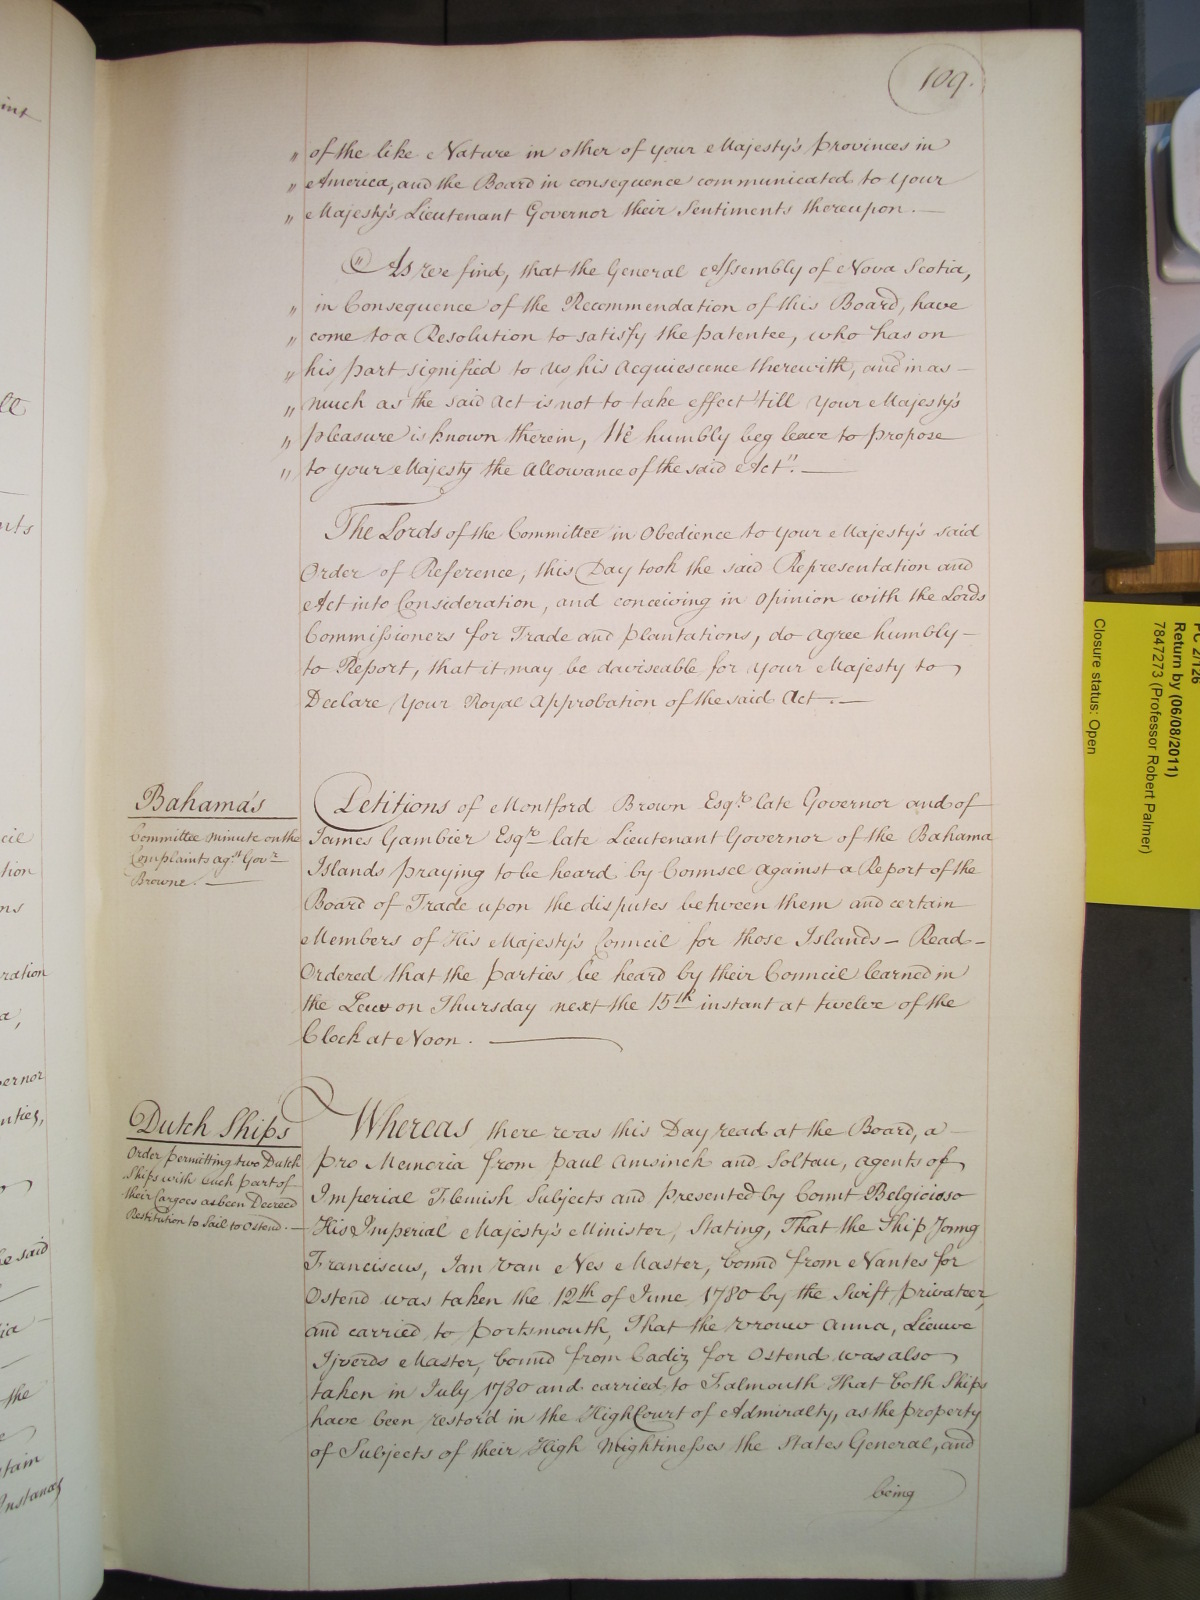 109.
" of the like Nature in other of your Majesty's Provinces in
" America, and the Board in consequence communicated to Your
" Majesty's Lieutenant Governor their Sentiments thereupon.—
" As we find, that the General Assembly of Nova Scotia,
" in Consequence of the Recommendation of this Board, have
" come to a Resolution to satisfy the patentee, who has on
" his part signified to Us his Acquiescence therewith, and in as–
" much as the said Act is not to take effect 'till Your Majesty's
" pleasure is known therein, We humbly beg leave to propose
" to your Majesty the Allowance of the said Act".—
The Lords of the Committee in Obedience to Your Majesty's said
Order of Reference, this Day took the said Representation and
Act into Consideration, and conceiving in Opinion with the Lords
Commissioners for Trade and Plantations, do agree humbly–
to Report, that it may be daviseable for Your Majesty to
Declare Your Royal Approbation of the said Act.—
Bahama's
Committee Minute on the
Complaints agst Govr
Browne.—
Petitions of Montford Brown Esqr. late Governor and of
James Gambier Esqr late Lieutenant Governor of the Bahama
Islands praying to be heard by Counsel against a Report of the
Board of Trade upon the disputes between them and certain
Members of His Majesty's Council for those Islands – Read –
Ordered that the parties be heard by their Council learned in
the Law on Thursday next the 15th instant at twelve of the
Clock at Noon.—
Dutch Ships
Order permitting two Dutch
Ships with such part of
their Cargoes as been Decreed
Restitution to Sail to Ostend.—
Whereas there was this Day read at the Board, a–
Pro Memoria from Paul Amsinck and Soltau, Agents of
Imperial Flemish Subjects and presented by Count Belgioioso
His Imperial Majesty's Minister, Stating, That the Ship Jonng
Franciscus, Jan van Nes Master, bound from Nantes for
Ostend was taken the 12th of June 1780 by the Swift privateer,
and carried to Portsmouth, That the Vrouw Anna, Lieuwe
Ijverds Master, bound from Cadiz for Ostend was also
taken in July 1780 and carried to Falmouth That both Ships
have been restor'd in the High Court of Admiralty, as the property
of Subjects of their High Mightinesses the States General, and
being
PC 2/126
Return by (06/08/2011)
7847273 (Professor Robert Palmer)
Closure status: Open